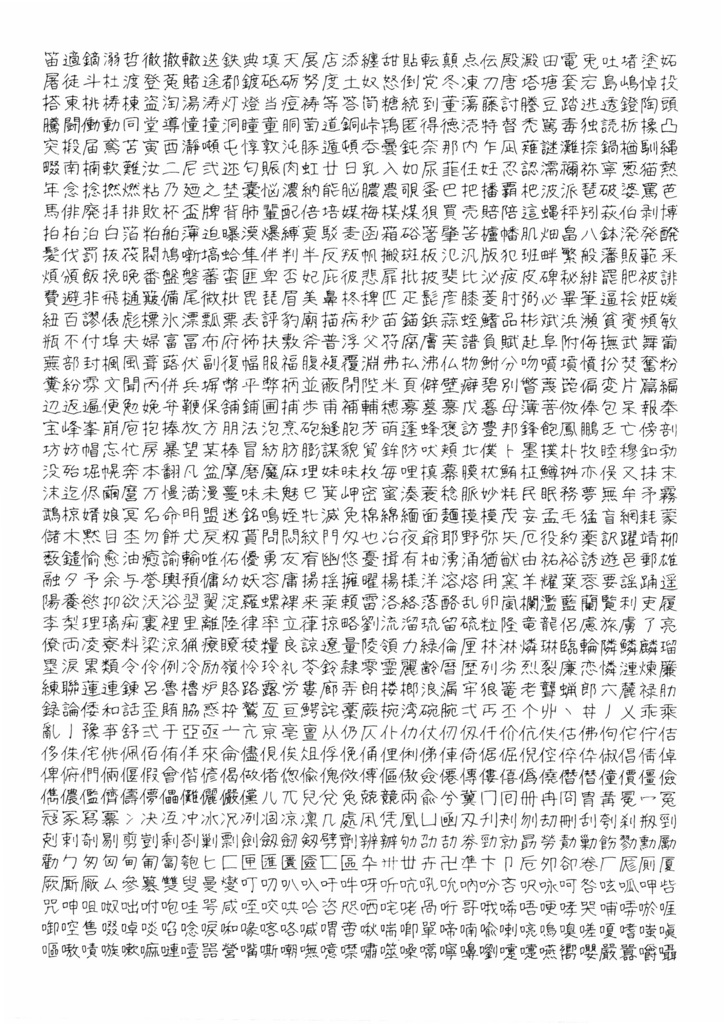 笛適鏑溺哲徹撤轍迭鉄典填天展店添纏甜貼転顛点伝殿澱田電兎吐堵塗妬
屠徒斗杜渡登菟賭途都鍍砥砺努度土奴怒倒党冬凍刀唐塔塘套宕島嶋悼投
搭東桃梼棟盗淘湯涛灯燈当痘祷等答筒糖統到董蕩藤討謄豆踏逃透鐙陶頭
騰闘働動同堂導憧撞洞瞳童胴萄道銅峠鴇匿得徳涜特督禿篤毒独読栃橡凸
突椴届鳶苫寅酉瀞噸屯惇敦沌豚遁頓呑曇鈍奈那内乍凪薙謎灘捺鍋楢馴縄
畷南楠軟難汝二尼弐迩匂賑肉虹廿日乳入如尿韮任妊忍認濡禰祢寧葱猫熱
年念捻撚燃粘乃廼之埜嚢悩濃納能脳膿農覗蚤巴把播覇杷波派琶破婆罵芭
馬俳廃拝排敗杯盃牌背肺輩配倍培媒梅楳煤狽買売賠陪這蝿秤矧萩伯剥博
拍柏泊白箔粕舶薄迫曝漠爆縛莫駁麦函箱硲箸肇筈櫨幡肌畑畠八鉢溌発醗
髪伐罰抜筏閥鳩噺塙蛤隼伴判半反叛帆搬斑板氾汎版犯班畔繁般藩販範釆
煩頒飯挽晩番盤磐蕃蛮匪卑否妃庇彼悲扉批披斐比泌疲皮碑秘緋罷肥被誹
費避非飛樋簸備尾微枇毘琵眉美鼻柊稗匹疋髭彦膝菱肘弼必畢筆逼桧姫媛
紐百謬俵彪標氷漂瓢票表評豹廟描病秒苗錨鋲蒜蛭鰭品彬斌浜瀕貧賓頻敏
瓶不付埠夫婦富冨布府怖扶敷斧普浮父符腐膚芙譜負賦赴阜附侮撫武舞葡
蕪部封楓風葺蕗伏副復幅服福腹複覆淵弗払沸仏物鮒分吻噴墳憤扮焚奮粉
糞紛雰文聞丙併兵塀幣平弊柄並蔽閉陛米頁僻壁癖碧別瞥蔑箆偏変片篇編
辺返遍便勉娩弁鞭保舗鋪圃捕歩甫補輔穂募墓慕戊暮母簿菩倣俸包呆報奉
宝峰峯崩庖抱捧放方朋法泡烹砲縫胞芳萌蓬蜂褒訪豊邦鋒飽鳳鵬乏亡傍剖
坊妨帽忘忙房暴望某棒冒紡肪膨謀貌貿鉾防吠頬北僕卜墨撲朴牧睦穆釦勃
没殆堀幌奔本翻凡盆摩磨魔麻埋妹昧枚毎哩槙幕膜枕鮪柾鱒桝亦俣又抹末
沫迄侭繭麿万慢満漫蔓味未魅巳箕岬密蜜湊蓑稔脈妙粍民眠務夢無牟矛霧
鵡椋婿娘冥名命明盟迷銘鳴姪牝滅免棉綿緬面麺摸模茂妄孟毛猛盲網耗蒙
儲木黙目杢勿餅尤戻籾貰問悶紋門匁也冶夜爺耶野弥矢厄役約薬訳躍靖柳
薮鑓愉愈油癒諭輸唯佑優勇友宥幽悠憂揖有柚湧涌猶猷由祐裕誘遊邑郵雄
融夕予余与誉輿預傭幼妖容庸揚揺擁曜楊様洋溶熔用窯羊耀葉蓉要謡踊遥
陽養慾抑欲沃浴翌翼淀羅螺裸来莱頼雷洛絡落酪乱卵嵐欄濫藍蘭覧利吏履
李梨理璃痢裏裡里離陸律率立葎掠略劉流溜琉留硫粒隆竜龍侶慮旅虜了亮
僚両凌寮料梁涼猟療瞭稜糧良諒遼量陵領力緑倫厘林淋燐琳臨輪隣鱗麟瑠
塁涙累類令伶例冷励嶺怜玲礼苓鈴隷零霊麗齢暦歴列劣烈裂廉恋憐漣煉簾
練聯蓮連錬呂魯櫓炉賂路露労婁廊弄朗楼榔浪漏牢狼篭老聾蝋郎六麓禄肋
録論倭和話歪賄脇惑枠鷲亙亘鰐詫藁蕨椀湾碗腕弌丐丕个丱丶丼丿乂乖乘
亂亅豫亊舒弍于亞亟亠亢亰亳亶从仍仄仆仂仗仞仭仟价伉佚估佛佝佗佇佶
侈侏侘佻佩佰侑佯來侖儘俔俟俎俘俛俑俚俐俤俥倚倨倔倪倥倅伜俶倡倩倬
俾俯們倆偃假會偕偐偈做偖偬偸傀傚傅傴傲僉僊傳僂僖僞僥僭僣僮價僵儉
儁儂儖儕儔儚儡儺儷儼儻儿兀兒兌兔兢竸兩兪兮冀冂囘册冉冏冑冓冕冖冤
冦冢冩冪冫决冱冲冰况冽凅凉凛几處凩凭凰凵凾刄刋刔刎刧刪刮刳刹剏剄
剋剌剞剔剪剴剩剳剿剽劍劔劒剱劈劑辨辧劬劭劼劵勁勍勗勞勣勦飭勠勳勵
勸勹匆匈甸匍匐匏匕匚匣匯匱匳匸區卆卅丗卉卍凖卞卩卮夘卻卷厂厖厠厦
厥厮厰厶參簒雙叟曼燮叮叨叭叺吁吽呀听吭吼吮吶吩吝呎咏呵咎呟呱呷呰
咒呻咀呶咄咐咆哇咢咸咥咬哄哈咨咫哂咤咾咼哘哥哦唏唔哽哮哭哺哢唹啀
啣啌售啜啅啖啗唸唳啝喙喀咯喊喟啻啾喘喞單啼喃喩喇喨嗚嗅嗟嗄嗜嗤嗔
嘔嗷嘖嗾嗽嘛嗹噎噐營嘴嘶嘲嘸噫噤嘯噬噪嚆嚀嚊嚠嚔嚏嚥嚮嚶嚴囂嚼囁